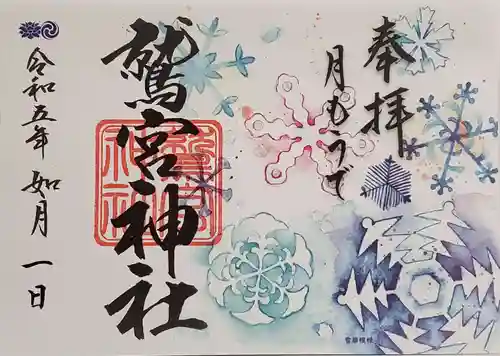 奉拝
月もうで
鷲宮神社
令和五年 如月 一日
雪華模様